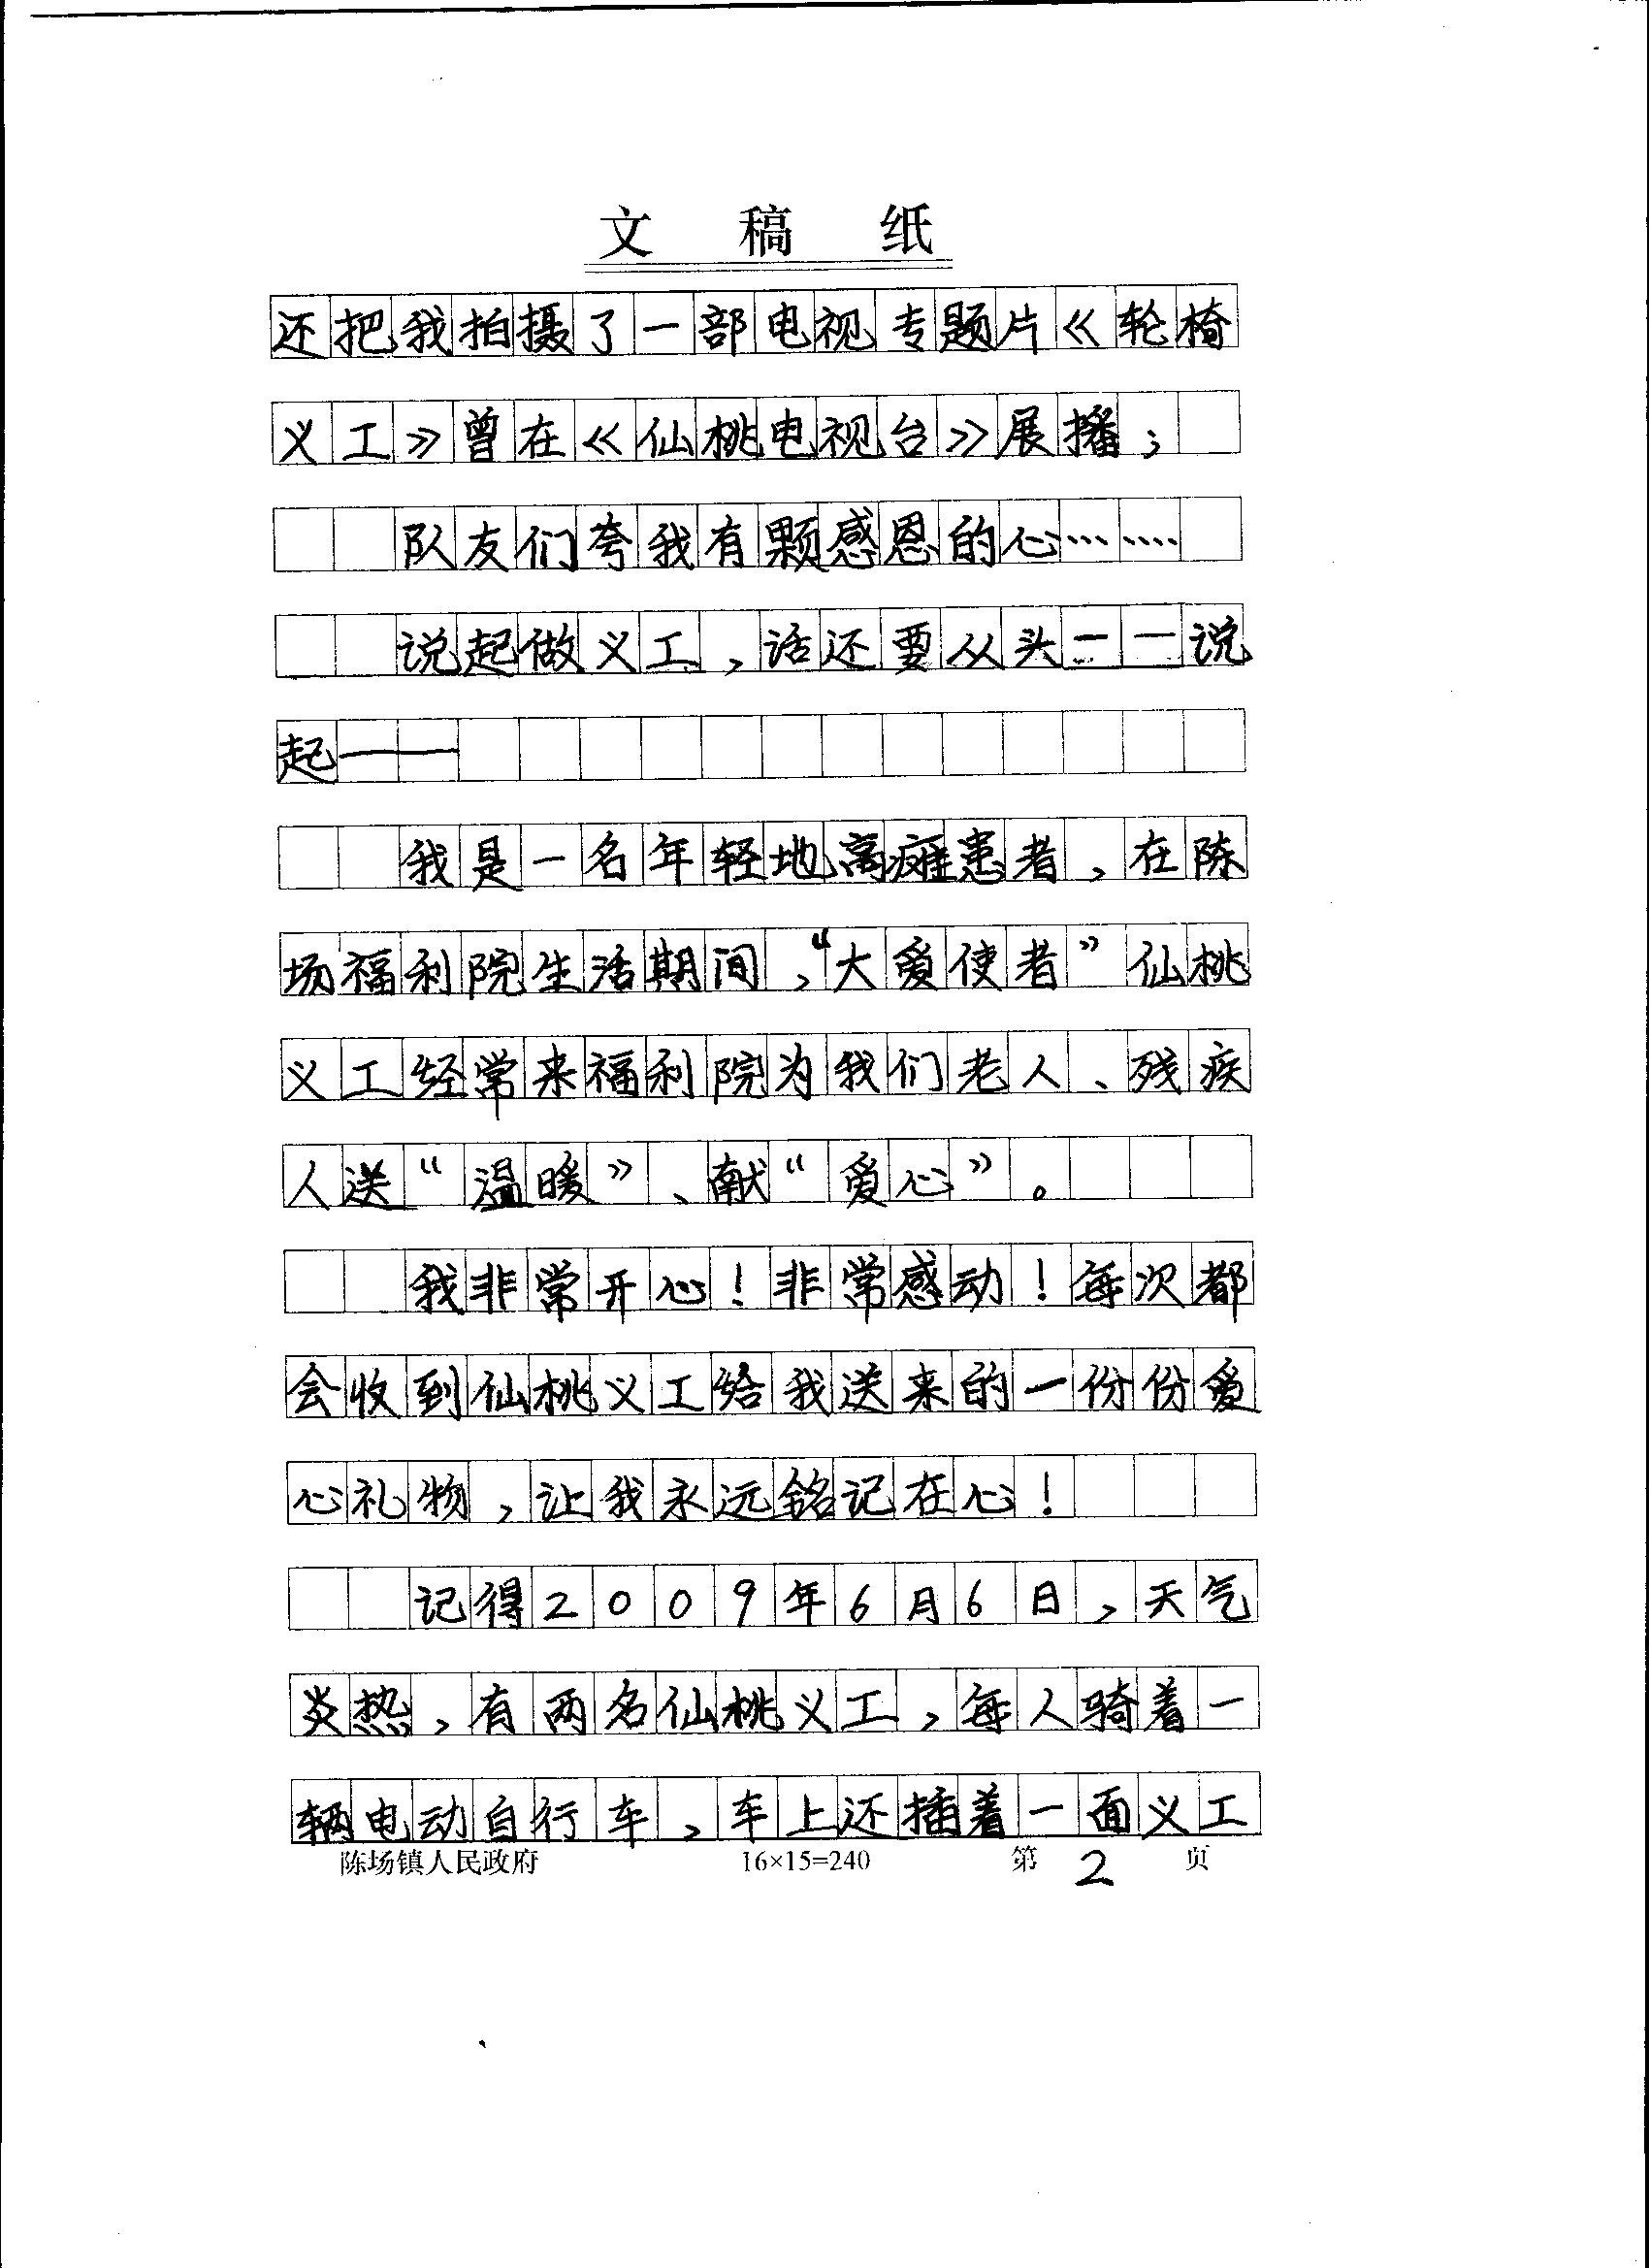 文 稿 纸
还把我拍摄了一部电视专题片《轮椅
义工》曾在《仙桃电视台》展播；
队友们夸我有颗感恩的心……
说起做义工，话还要从头一一说
起——
我是一名年轻地高瘫患者，在陈
场福利院生活期间，“大爱使者”仙桃
义工经常来福利院为我们老人、残疾
人送“温暖”、献“爱心”。
我非常开心！非常感动！每次都
会收到仙桃义工给我送来的一份份爱
心礼物，让我永远铭记在心！
记得2009年6月6日，天气
炎热，有两名仙桃义工，每人骑着一
辆电动自行车，车上还插着一面义工
陈场镇人民政府 16×15=240 第 2 页